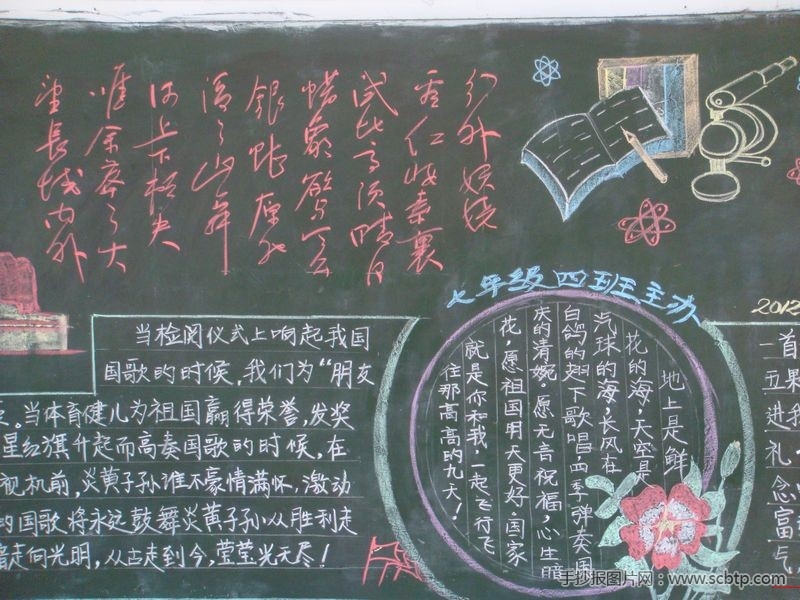 望長城内外
惟余莽々大
河上下顿失
滔々山舞
銀蛇原驰
蜡象欲与天
试比高须晴日
看红妆素裹
分外妖娆
七年级四班主办
2012
当检阅仪式上响起我国
国歌的时候,我们为“朋友
当体育健儿为祖国赢得荣誉,发奖
星红旗升起而高奏国歌的时候,在
视机前,炎黄子孙谁不豪情满怀,激动
的国歌将永远鼓舞炎黄子孙从胜利走
走向光明,从古走到今,莹莹光无尽!
地上是鲜
花的海,天空是
汽球的海,长风在
白鸽的翅下歌唱四季弹奏国
庆的清婉。愿无言祝福,心生暗
花,愿祖国用天更好。国家
就是你和我,一起飞行飞
往那高高的九大!
一首
五果
进我
礼
念
富
气,
手抄报图片网:www.scbtp.com